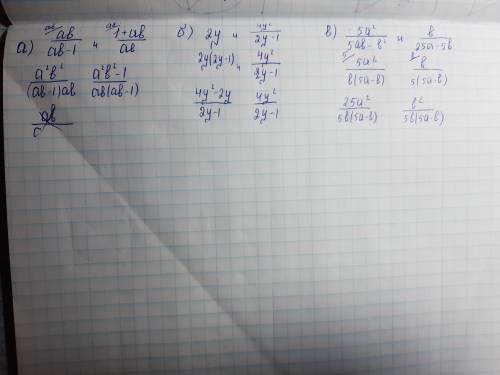 а) ab/(ab-1) и (1+ab)/ab
a²b²/((ab-1)ab) (a²b²-1)/(ab(ab-1))
ab
б) 2y и 4y²/(2y-1)
2y(2y-1) и 4y²/(2y-1)
(4y²-2y)/(2y-1) 4y²/(2y-1)
в) 5a²/(5ab-b²) и b/(25a-5b)
5a²/(b(5a-b)) b/(5(5a-b))
25a²/(5b(5a-b)) b²/(5b(5a-b))